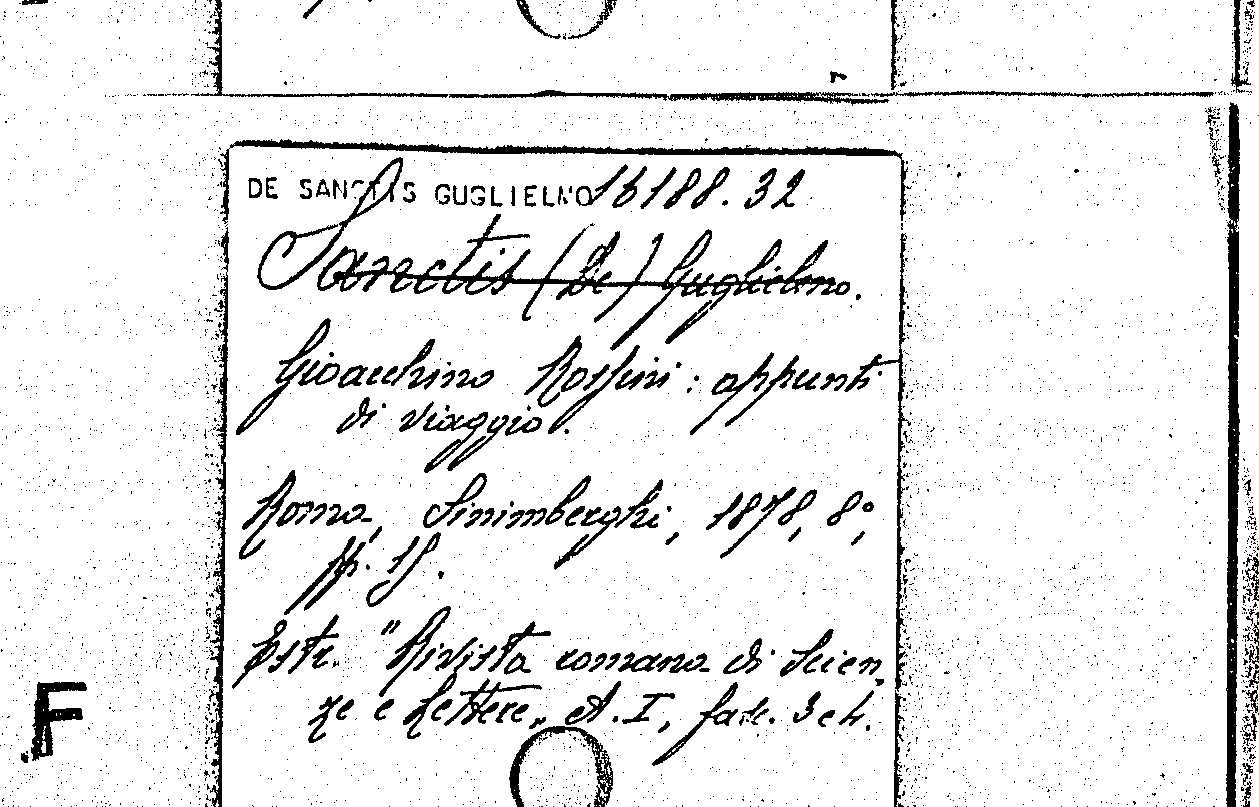 DE SANCTIS GUGLIELMO 16188.32
Sanctis (De) Guglielmo.
Gioacchino Rossini : appunti
di viaggio.
Roma, Sinimberghi, 1878, 8°,
pp. 15.
Estr. "Rivista romana di Scien
ze e Lettere„ A. I, fasc. 3 e 4.
F